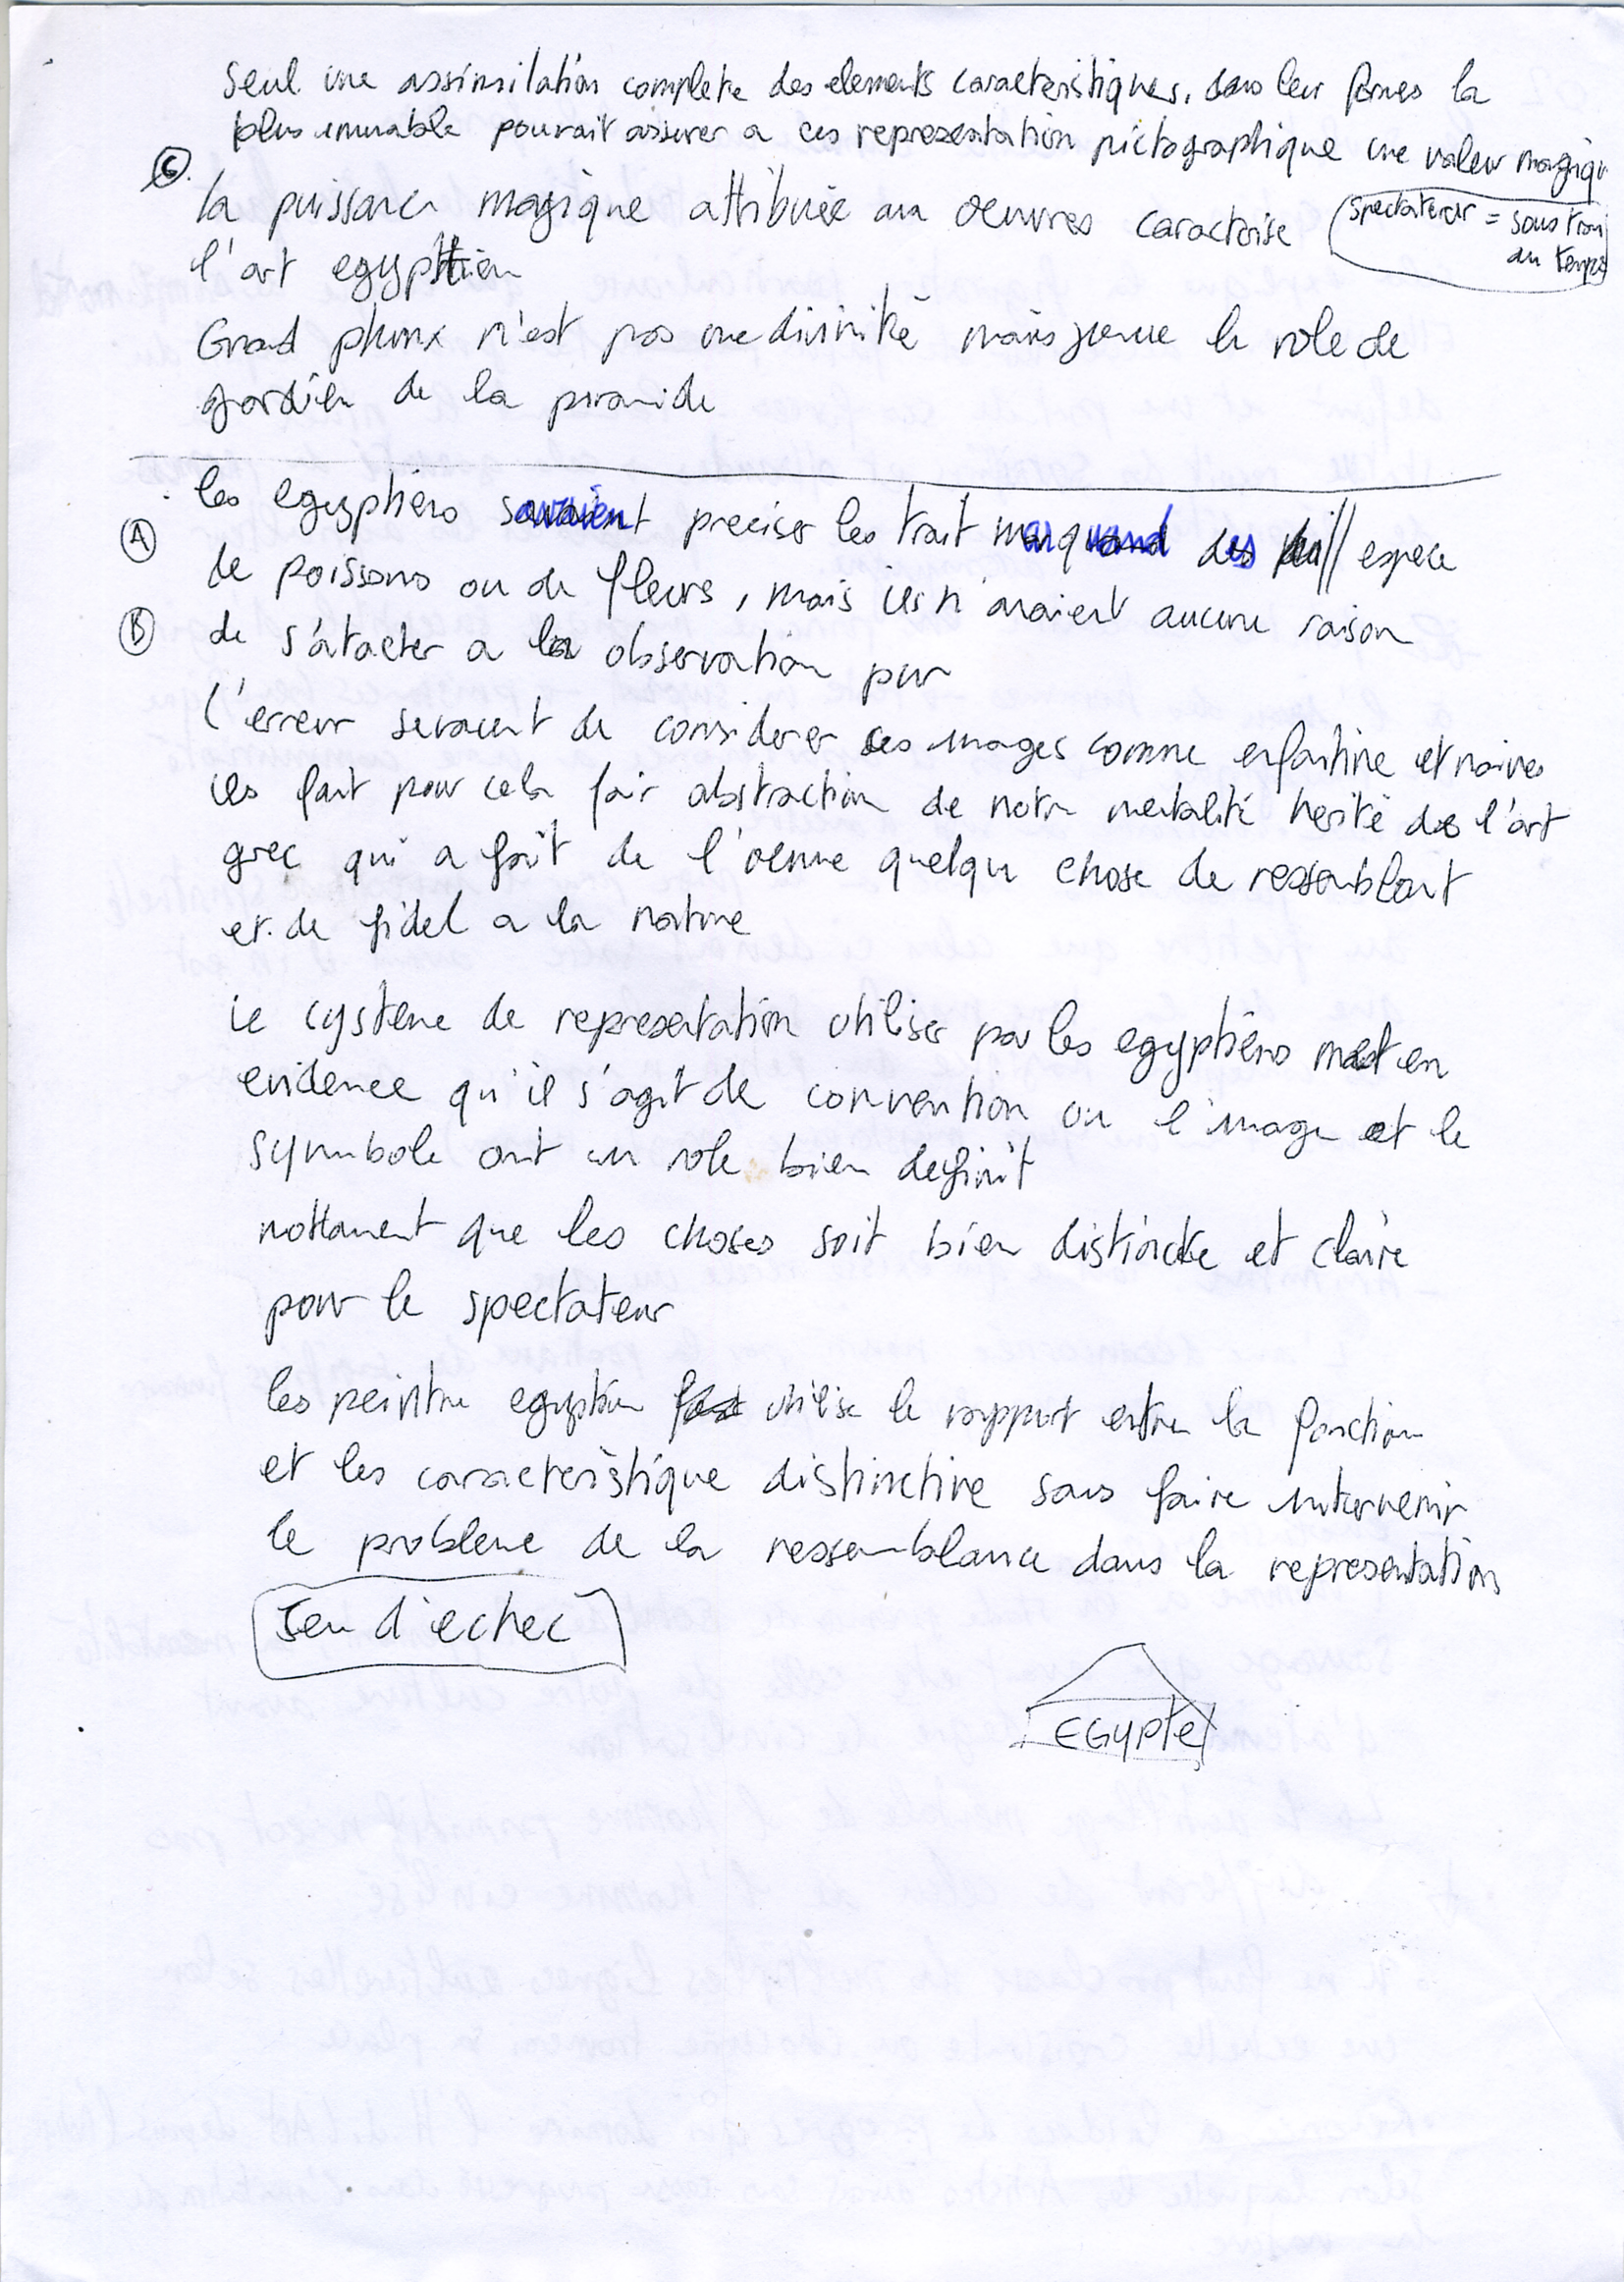 Seul une assimilation complete des elements caracteristiques, dans leur formes la
plus immuable pourait assurer a ces representation pictographique une valeur magiqu
6.
la puissance magique attribuée aux oeuvres caracterise
(spectateur = soustrai
du temps
l'art egyptien
Grand phinx n'est pas une divinité mais joue le role de
gardien de la piramide
les egyptiens savaient preciser les trait marquand des diff espece
A
de poissons ou de fleurs, mais ils n'avaient aucune raison
B
de s'atacter a la observation pur
l'erreur seraient de considerer ces images comme enfantine et naives
ils faut pour cela fair abstraction de notre mentalité herité de l'art
grec qui a fait de l'oeuvre quelque chose de ressemblant
et de fidel a la nature
le cysteme de representation utiliser par les egyptiens met en
evidence qu'il s'agit de convention ou l'image et le
symbole ont un role bien definit
nottament que les choses soit bien distincte et claire
pour le spectateur
les peintre egyptien utilise le rapport entre la fonction
et les caracteristique distinctive sans faire intervenir
le probleme de la ressemblance dans la representation
Jeu d'echec
EGYPTE